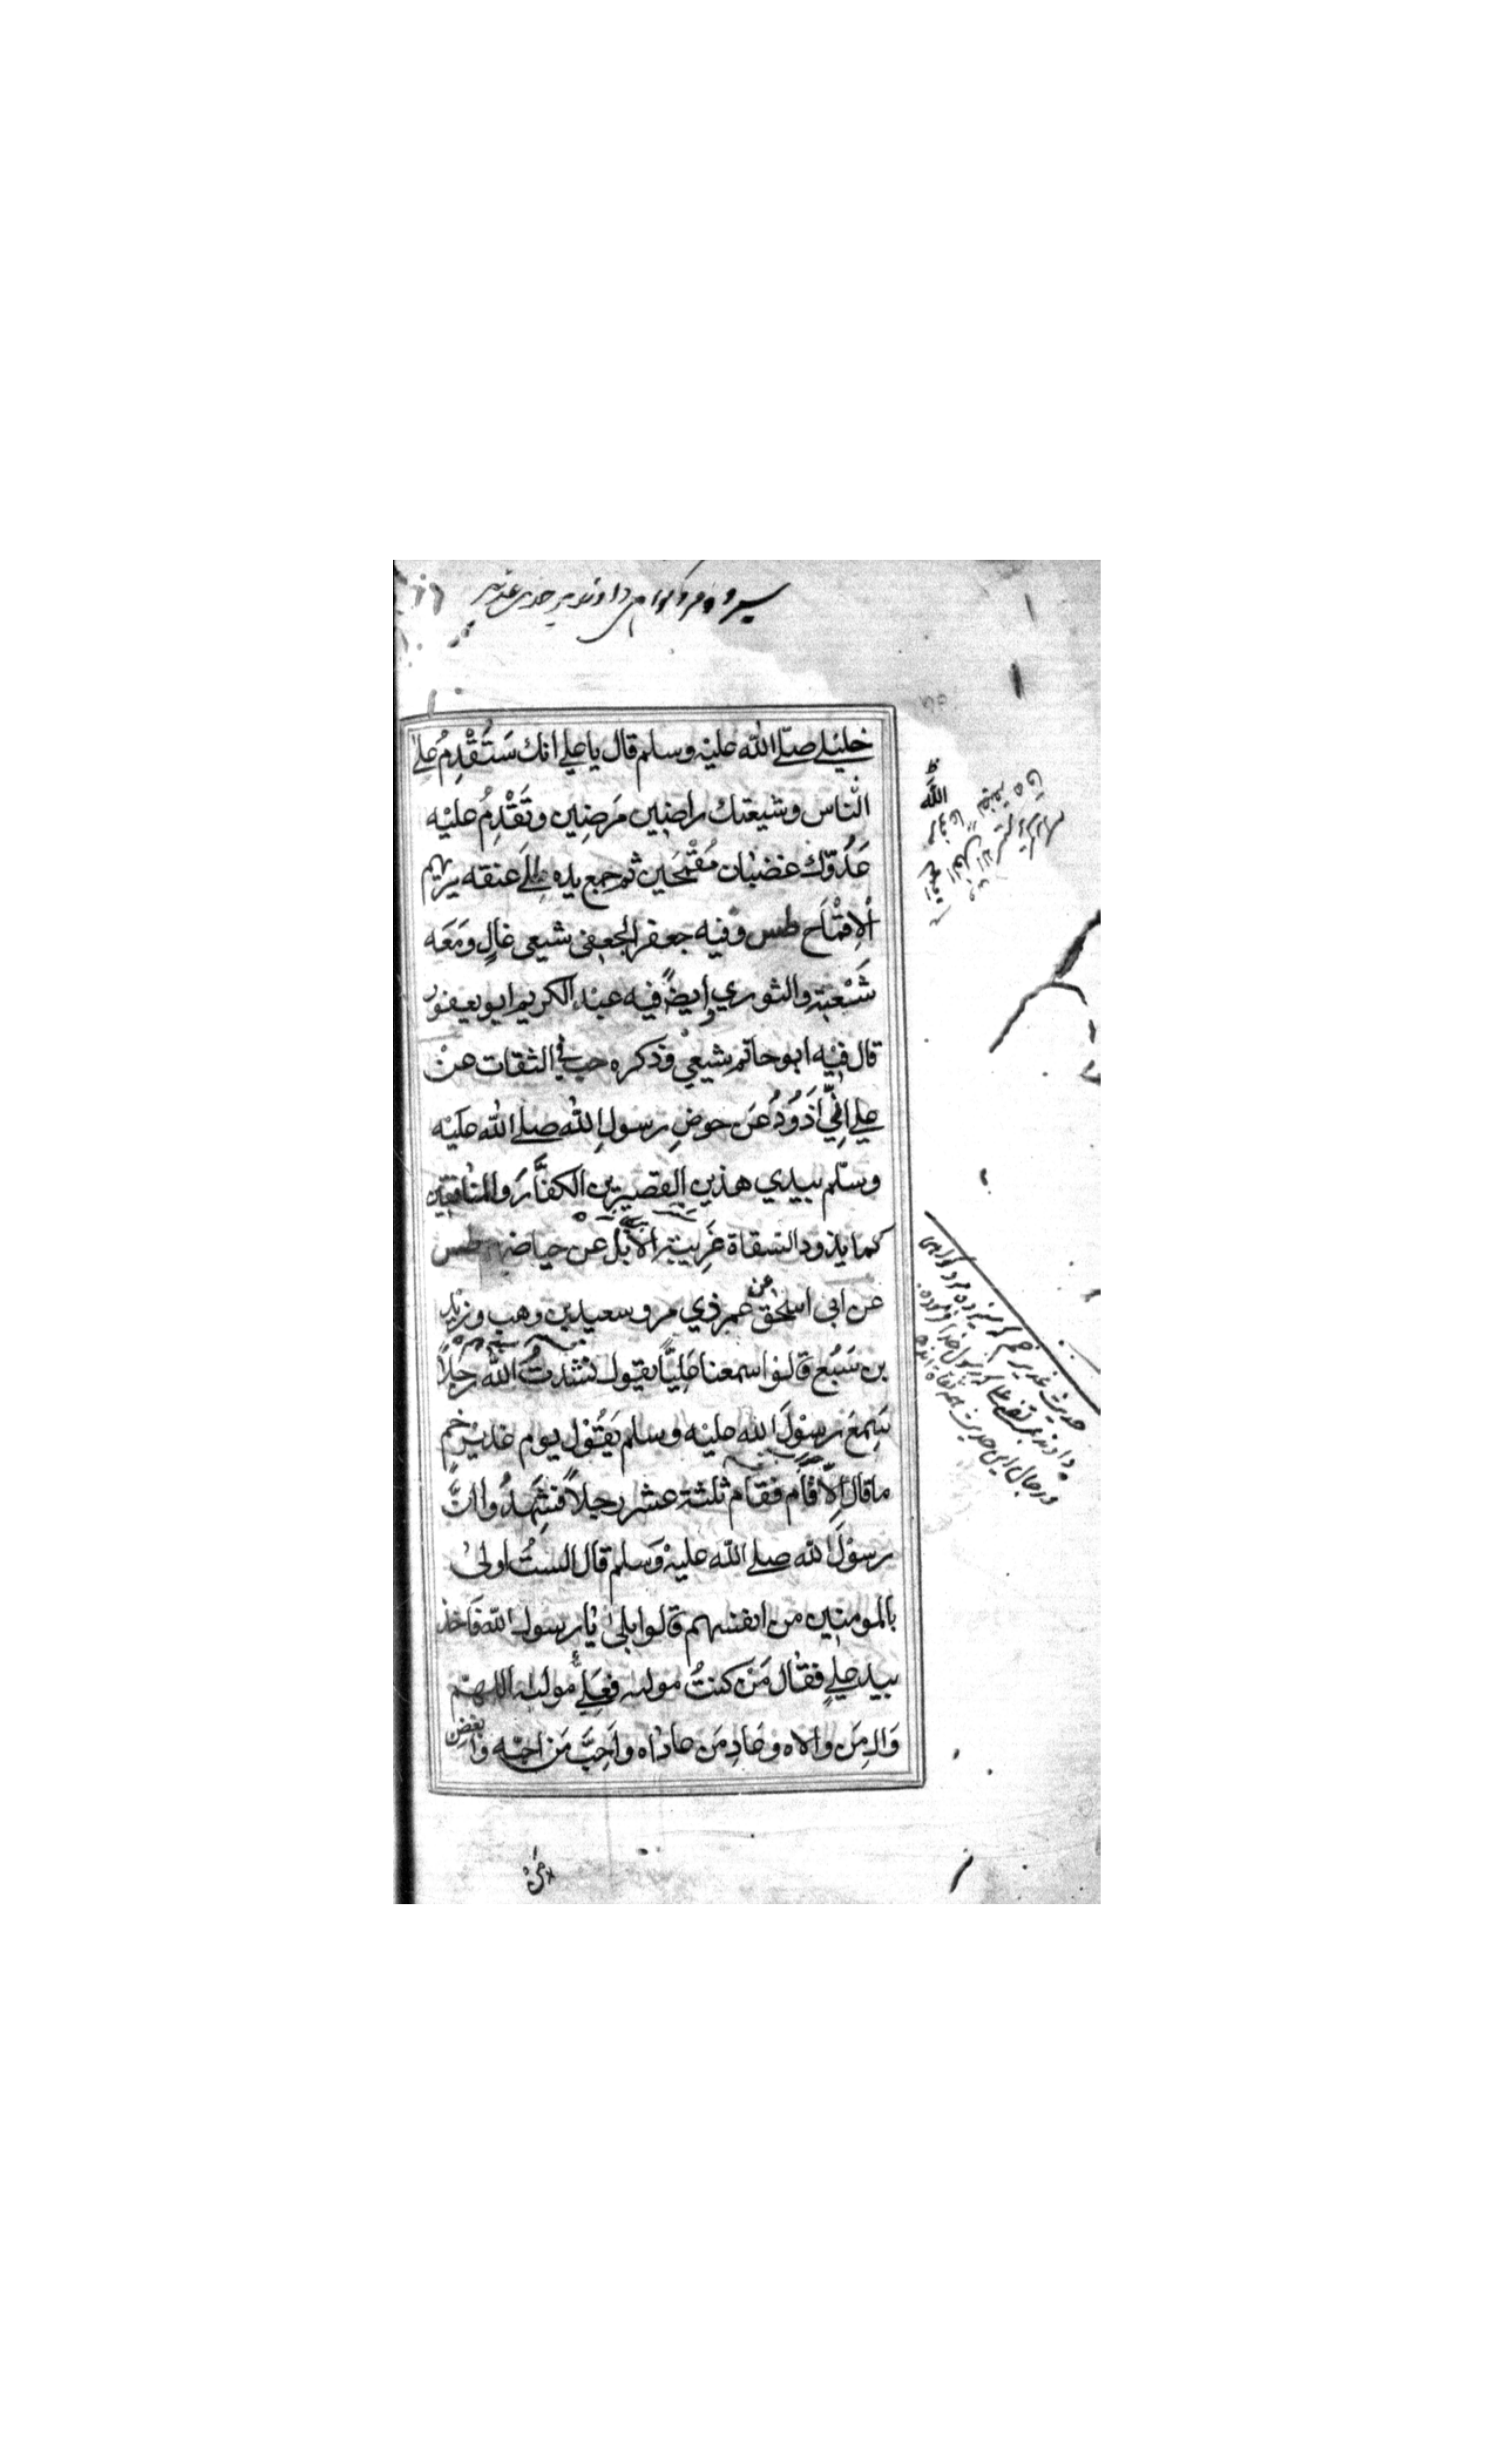 خليلي صلے الله عليه وسلم قال يا علي انك سَتَقْدِمُ علٰى
الناس وشيعتك راضيين مَرضِيين وتَقْدِمُ عليْه
عَدُوّك غضبان مُقْمَحَين ثم جمع يده الے عنقه يريهم
الاِقْمَاح طس وفيه جعفر الجعفي شيعي غالٍ ومَعَه
شَعْبة والثوري وايضًا فيه عبد الكريم ابو يعفور
قال فيه ابو حاتم شيعي وذكره حب في الثقات عن
علي اِنِّي اَذُوْدُ عَن حوضِ رسولِ الله صلے الله عليه
وسلم بيدي هذين القصيرتين الكفَّارَ والمنافقين
كما يذود السقاة غَرِيبة الاِبل عن حياضهم طس
عن ابي اسحٰق عن عمر ذي مر وسعيد بن وهب وزيد
بن سَبُع قالوا سمعنا عَلِيًّا يقول نشدتُ الله رجلاً
سَمِعَ رسولَ الله عليه وسلم يَقُول يوم غدير خم
ما قال اِلّا قام فقام ثلثة عشر رجلاً فشَهِدُوا انَّ
رسولَ الله صلے الله عليه وسلم قال الستُ اولىٰ
بالمومنين من انفسهم قالوا بلىٰ يا رسول الله فاخذ
بيد علي فقال مَن كنتُ مولاه فعَلِيٌّ مولاه اللهم
وَالِ مَن والاه وعَادِ مَن عاداه واَحِبَّ مَن احبه وابغض
الله
حديث غدير خم كه سيزده مرد گواهى